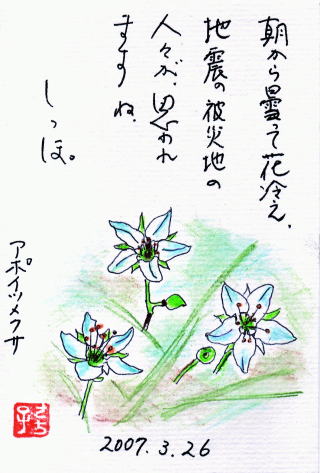 朝から曇って花冷え、
地震の被災地の
人々が、思われ
ますね、
しっぽ。
アポイツメクサ
2007.3.26